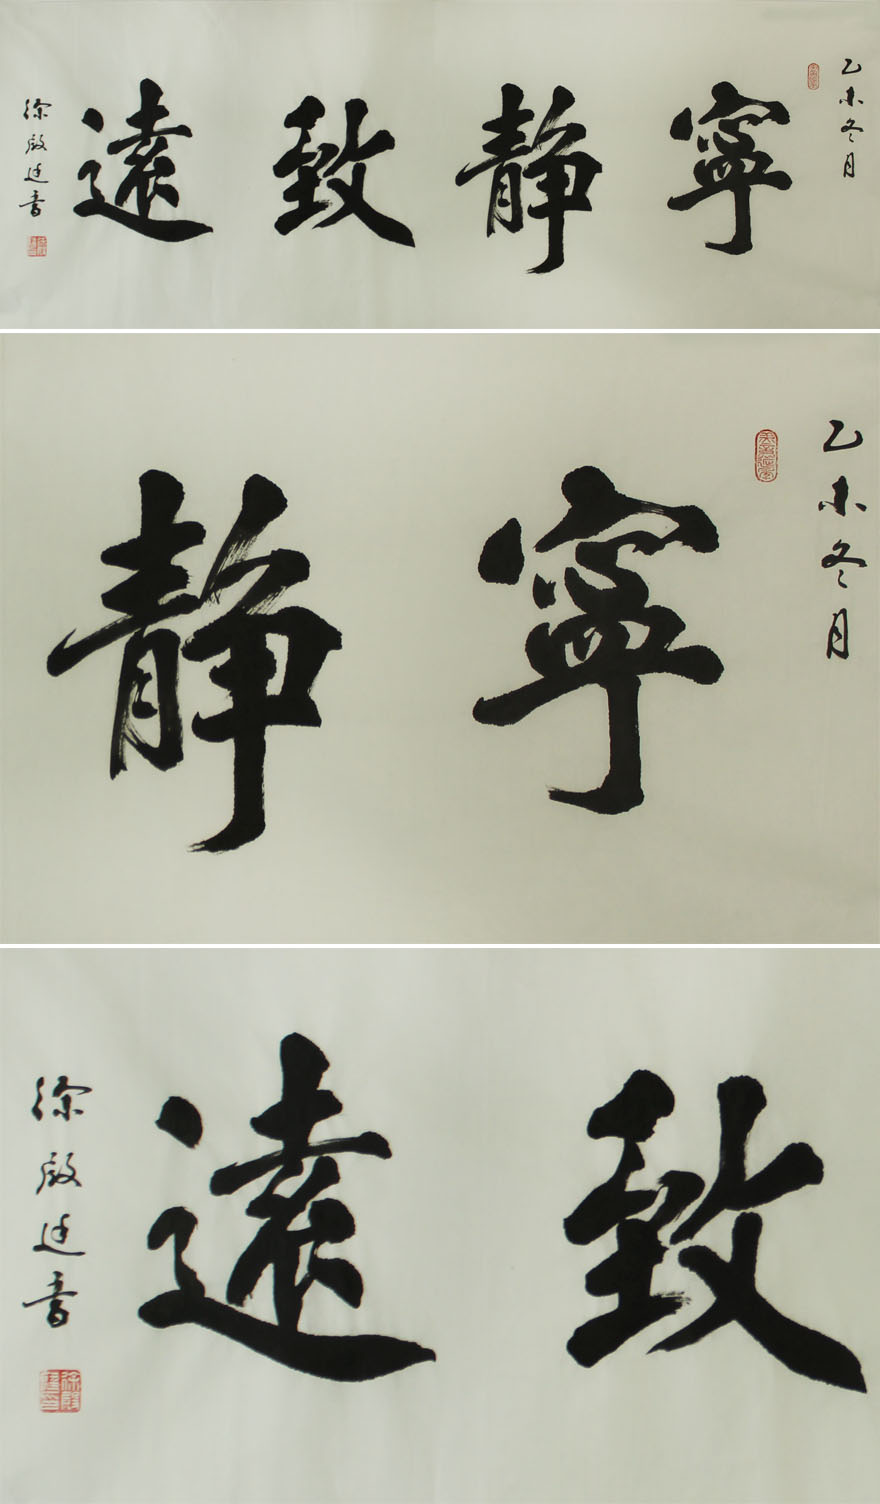 乙未冬月
寧静致遠
徐殿廷書
乙未冬月
寧静
致遠
徐殿廷書